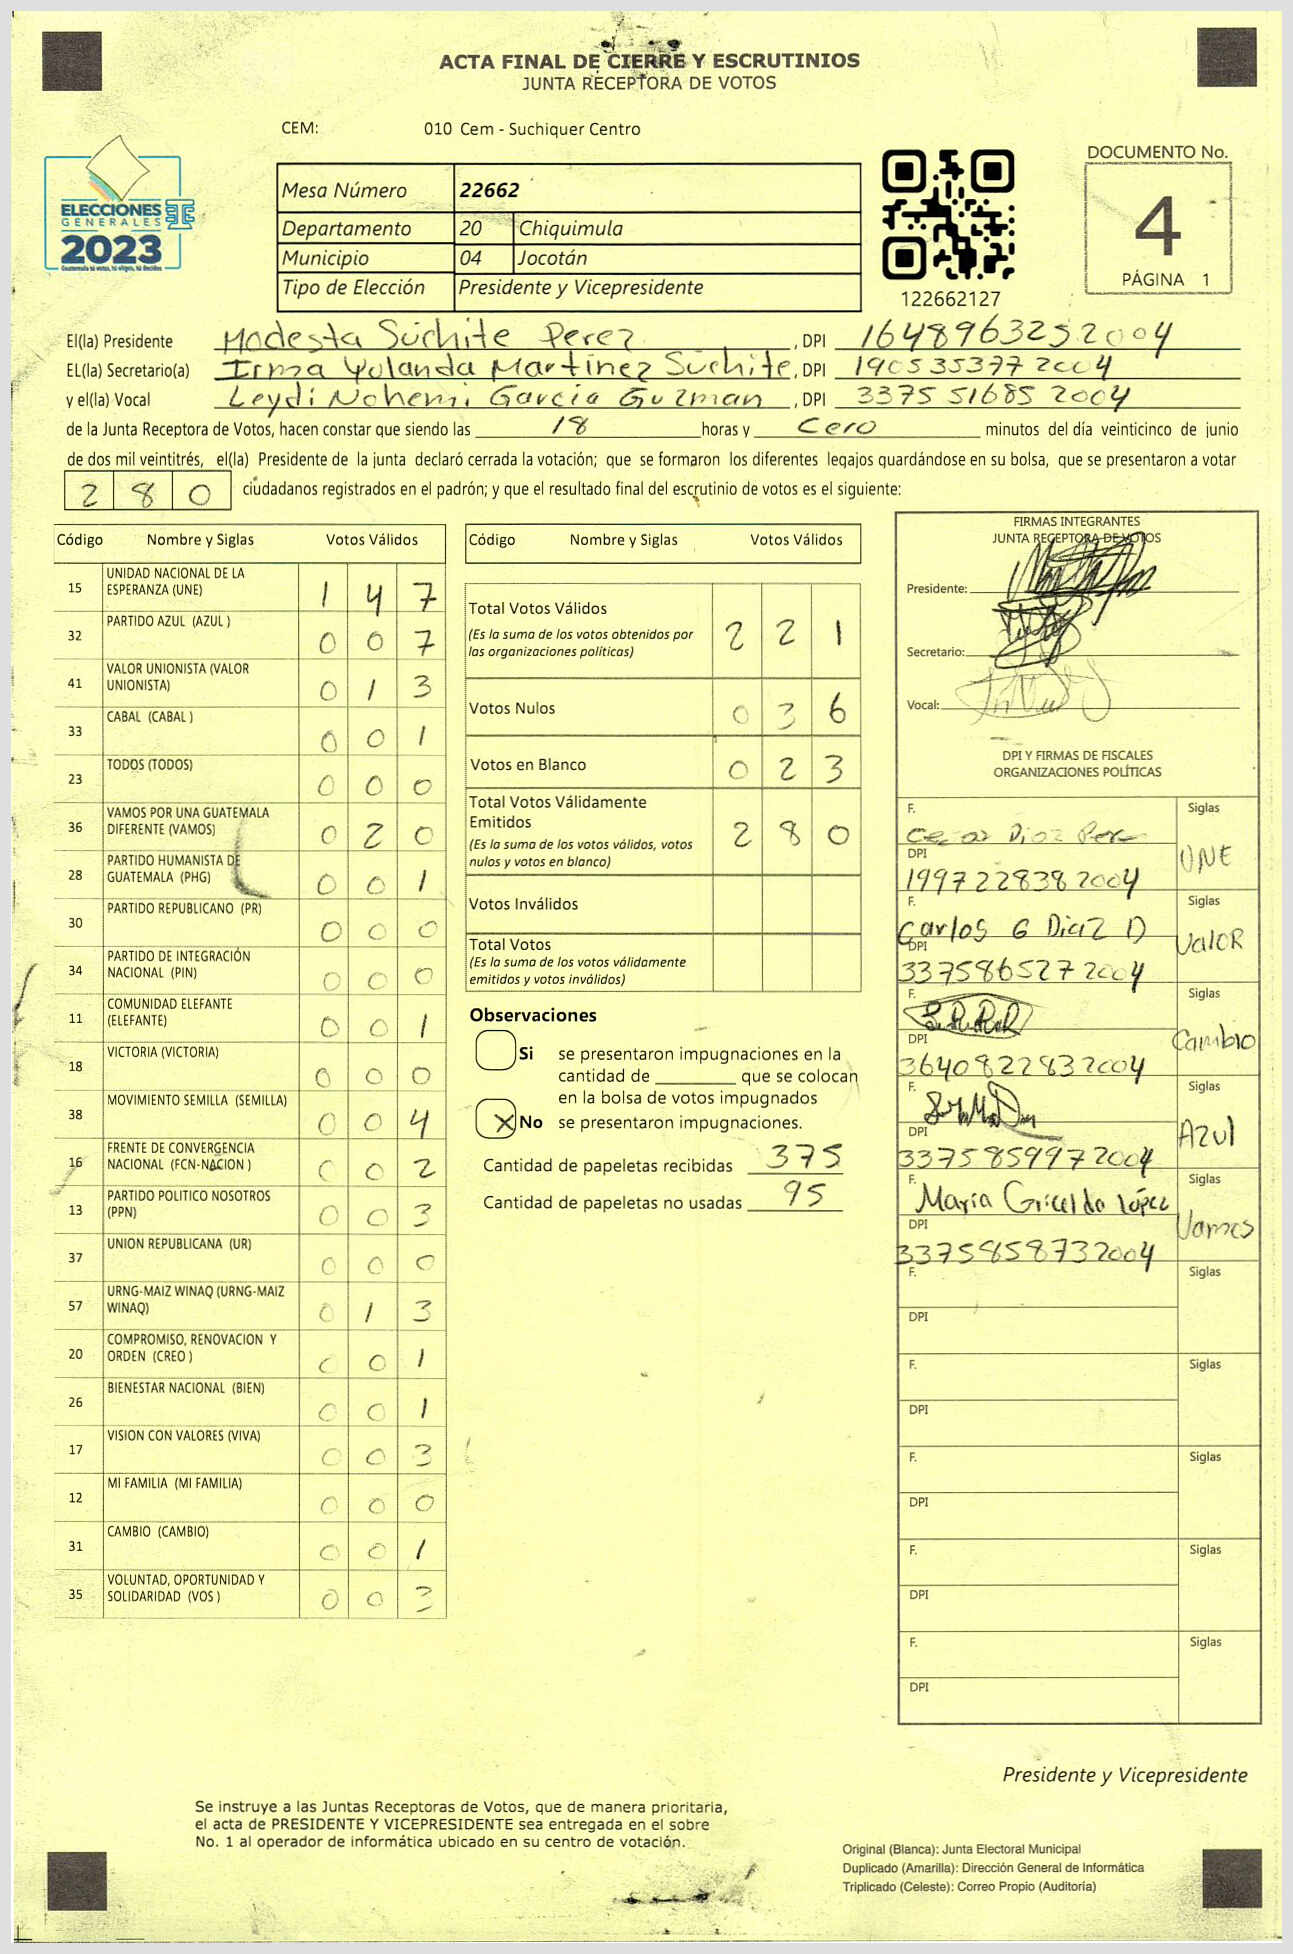 ACTA FINAL DE CIERRE Y ESCRUTINIOS
JUNTA RECEPTORA DE VOTOS
CEM: 010 Cem - Suchiquer Centro
ELECCIONES
GENERALES
2023
Guatemala tú votas, tú eliges, tú decides
Mesa Número 22662
Departamento 20 Chiquimula
Municipio 04 Jocotán
Tipo de Elección Presidente y Vicepresidente
122662127
DOCUMENTO No.
4
PÁGINA 1
El(la) Presidente Modesta Súchite Perez, DPI 1648963252004
EL(la) Secretario(a) Irma Yolanda Martínez Súchite, DPI 1905353772004
y el(la) Vocal Leydi Nohemi García Guzman, DPI 3375516852004
de la Junta Receptora de Votos, hacen constar que siendo las 18 horas y Cero minutos del día veinticinco de junio
de dos mil veintitrés, el(la) Presidente de la junta declaró cerrada la votación; que se formaron los diferentes legajos quardándose en su bolsa, que se presentaron a votar
280 ciudadanos registrados en el padrón; y que el resultado final del escrutinio de votos es el siguiente:
Código Nombre y Siglas Votos Válidos
15 UNIDAD NACIONAL DE LA ESPERANZA (UNE) 1 4 7
32 PARTIDO AZUL (AZUL ) 0 0 7
41 VALOR UNIONISTA (VALOR UNIONISTA) 0 1 3
33 CABAL (CABAL ) 0 0 1
23 TODOS (TODOS) 0 0 0
36 VAMOS POR UNA GUATEMALA DIFERENTE (VAMOS) 0 2 0
28 PARTIDO HUMANISTA DE GUATEMALA (PHG) 0 0 1
30 PARTIDO REPUBLICANO (PR) 0 0 0
34 PARTIDO DE INTEGRACIÓN NACIONAL (PIN) 0 0 0
11 COMUNIDAD ELEFANTE (ELEFANTE) 0 0 1
18 VICTORIA (VICTORIA) 0 0 0
38 MOVIMIENTO SEMILLA (SEMILLA) 0 0 4
16 FRENTE DE CONVERGENCIA NACIONAL (FCN-NACION ) 0 0 2
13 PARTIDO POLITICO NOSOTROS (PPN) 0 0 3
37 UNION REPUBLICANA (UR) 0 0 0
57 URNG-MAIZ WINAQ (URNG-MAIZ WINAQ) 0 1 3
20 COMPROMISO, RENOVACION Y ORDEN (CREO ) 0 0 1
26 BIENESTAR NACIONAL (BIEN) 0 0 1
17 VISION CON VALORES (VIVA) 0 0 3
12 MI FAMILIA (MI FAMILIA) 0 0 0
31 CAMBIO (CAMBIO) 0 0 1
35 VOLUNTAD, OPORTUNIDAD Y SOLIDARIDAD (VOS ) 0 0 3
Código Nombre y Siglas Votos Válidos
Total Votos Válidos 2 2 1
(Es la suma de los votos obtenidos por
las organizaciones políticas)
Votos Nulos 0 3 6
Votos en Blanco 0 2 3
Total Votos Válidamente
Emitidos 2 8 0
(Es la suma de los votos válidos, votos
nulos y votos en blanco)
Votos Inválidos
Total Votos
(Es la suma de los votos válidamente
emitidos y votos inválidos)
Observaciones
Si se presentaron impugnaciones en la
cantidad de ________ que se colocan
en la bolsa de votos impugnados
X No se presentaron impugnaciones.
Cantidad de papeletas recibidas 375
Cantidad de papeletas no usadas 95
FIRMAS INTEGRANTES
JUNTA RECEPTORA DE VOTOS
Presidente:
Secretario:
Vocal:
DPI Y FIRMAS DE FISCALES
ORGANIZACIONES POLÍTICAS
F. Siglas
DPI 1997228382004 UNE
F. Carlos G Diaz D Siglas
DPI 3375865272004 ValoR
F. Siglas
DPI 3640822832004 Cambio
F. Siglas
DPI 3375859972004 Azul
F. María Griselda López Siglas
DPI 3375858732004 Vamos
F. Siglas
DPI
F. Siglas
DPI
F. Siglas
DPI
F. Siglas
DPI
F. Siglas
DPI
Presidente y Vicepresidente
Se instruye a las Juntas Receptoras de Votos, que de manera prioritaria,
el acta de PRESIDENTE Y VICEPRESIDENTE sea entregada en el sobre
No. 1 al operador de informática ubicado en su centro de votación.
Original (Blanca): Junta Electoral Municipal
Duplicado (Amarilla): Dirección General de Informática
Triplicado (Celeste): Correo Propio (Auditoría)